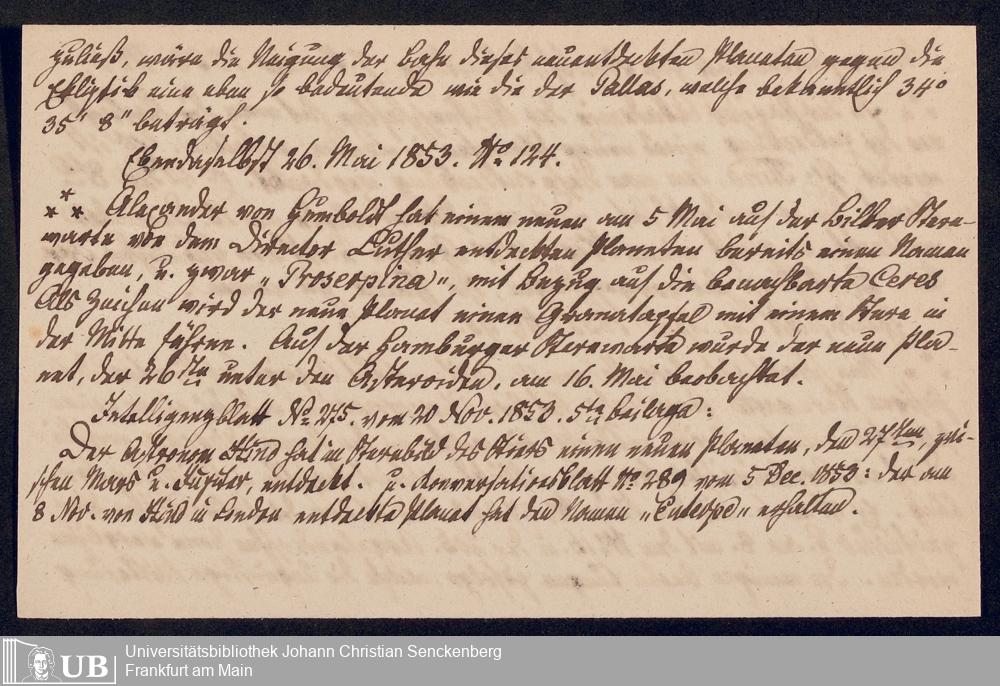 zuließ, wäre die Neigung der Bahn dieses neuentdeckten Planeten gegen die
Ekliptik eine eben so bedeutende wie die der Pallas, welche bekanntlich 34°
35' 8" beträgt.
Ebendaselbst 26. Mai 1853. No. 124.
*** Alexander von Humboldt hat einem neuen am 5 Mai auf der Bilker Stern-
warte von dem Director Luther entdeckten Planeten bereits einen Namen
gegeben, u. zwar „Proserpina", mit Bezug auf die benachbarte Ceres
Als Zeichen wird der neue Planet einen Granatapfel mit einem Stern in
der Mitte führen. Auf der Hamburger Sternwarte wurde der neue Pla-
net, der 26ste unter den Asteroiden, am 16. Mai beobachtet.
Intelligenzblatt No 275. vom 20 Nov. 1853. 5te Beilage:
Der Astronom Hind hat im Sternbild des Stiers einen neuen Planeten, den 27ten, zwi-
schen Mars u. Jupiter, entdeckt. u. Conversationsblatt No. 289 vom 5 Dec. 1853: der am
8 Nov. von Hind in London entdeckte Planet hat den Namen „Euterpe" erhalten.
UB
Universitätsbibliothek Johann Christian Senckenberg
Frankfurt am Main